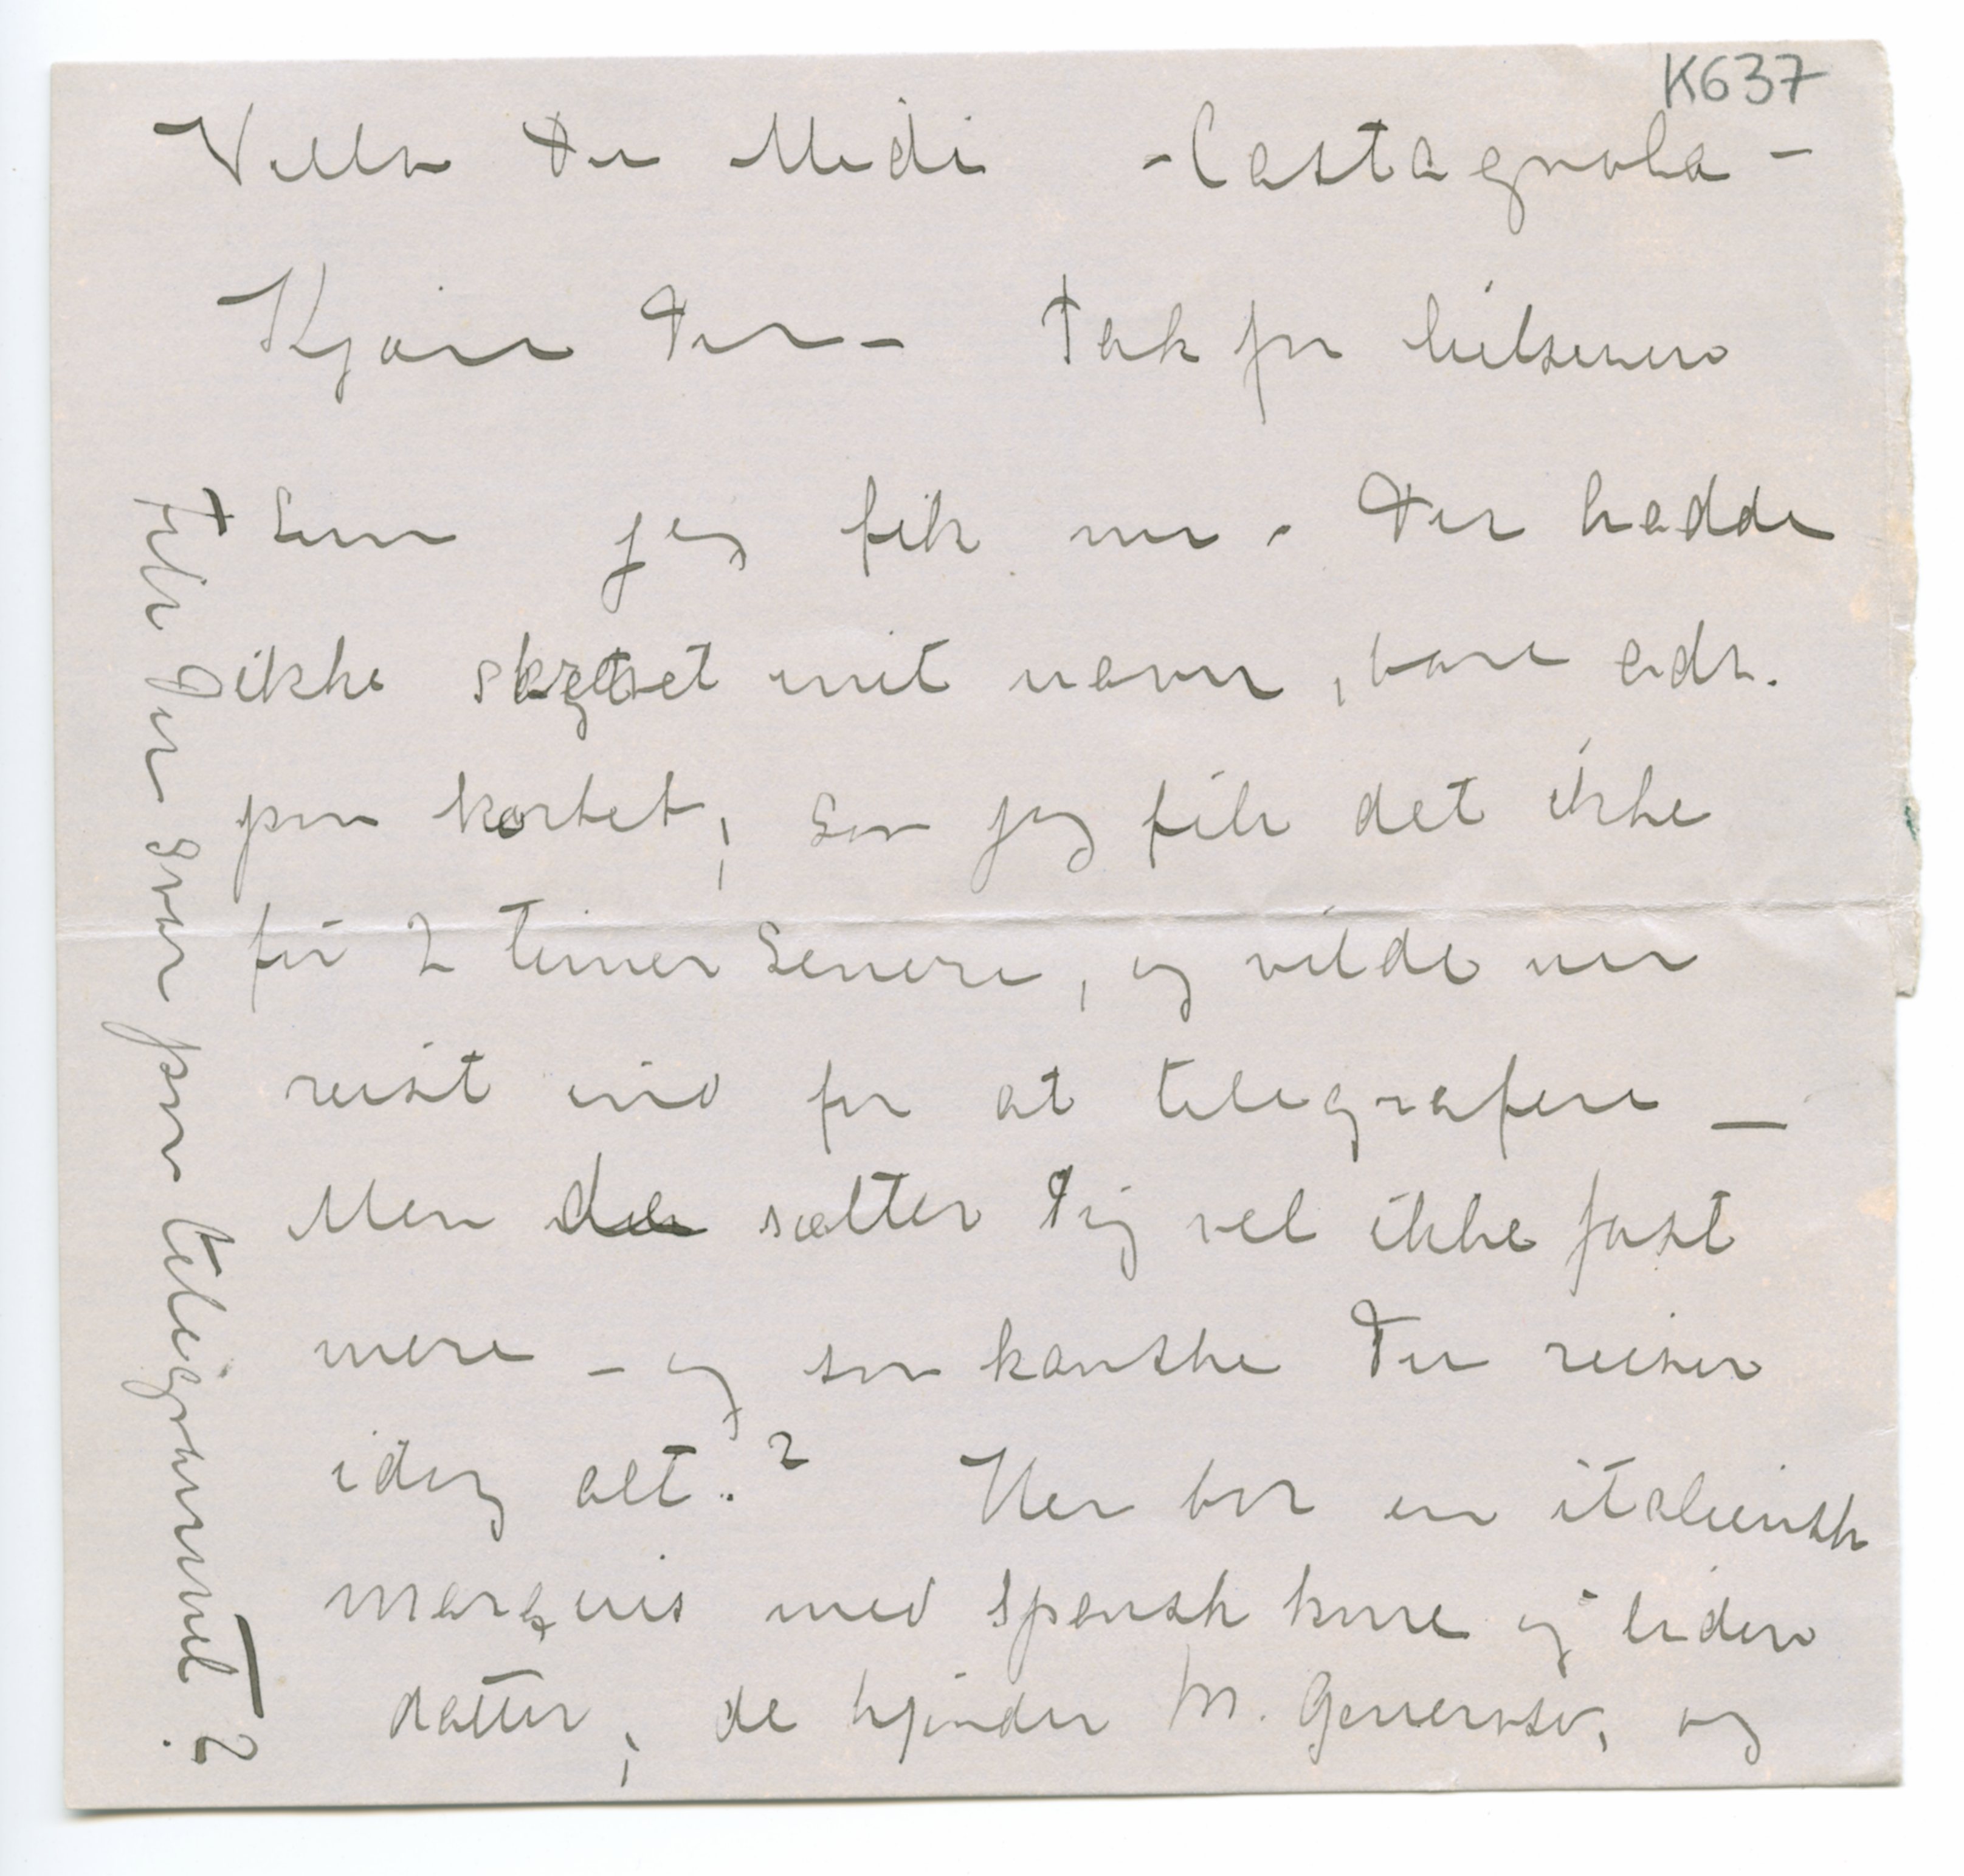 K637
Villa Du Midi - Castagnola -
Kjære Du - Tak for hilsenen
som jeg fik nu - Du hadde
ikke skrevet mit navn, bare adr.
paa kortet, saa jeg fik det ikke
før 2 timer senere, og vilde nu
reist ind for at telegrafere —
Men du sætter dig vel ikke fast
mere - og saa kanske Du reiser
idag alt.? Her bor en italiensk
marquis med spansk kone og liden
datter, de kjender M. Generoso, og
Fik Du svar paa telegrammet?